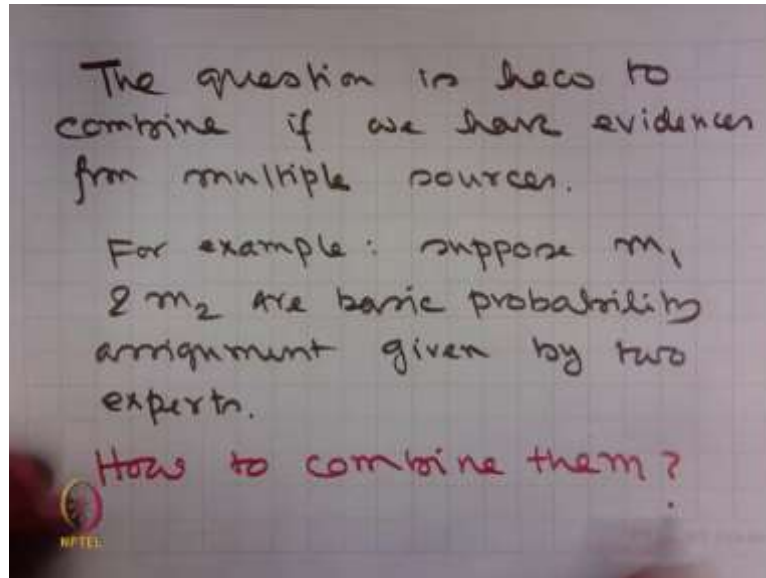 The question is how to
combine if we have evidences
from multiple sources.
For example: suppose m₁
& m₂ are basic probability
assignment given by two
experts.
How to combine them?
NPTEL